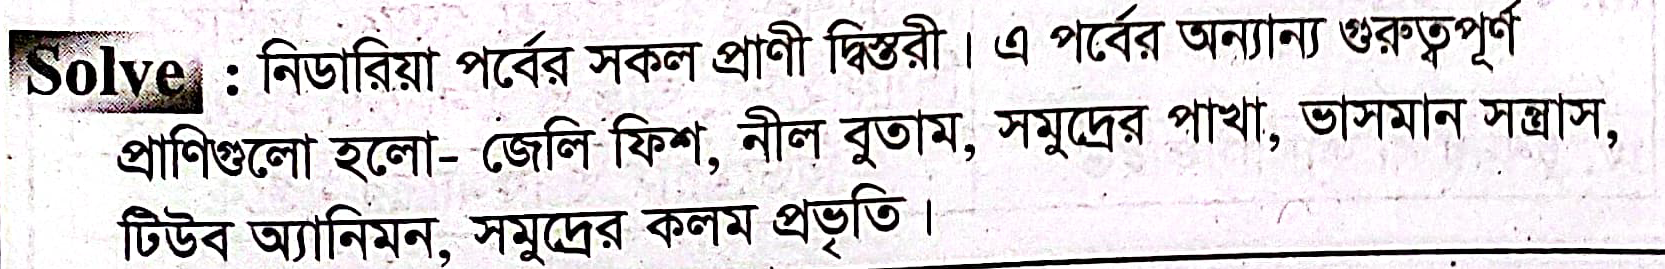 Solve : নিডারিয়া পর্বের সকল প্রাণী দ্বিস্তরী। এ পর্বের অন্যান্য গুরুত্বপূর্ণ
প্রাণিগুলো হলো- জেলি ফিশ, নীল বুতাম, সমুদ্রের পাখা, ভাসমান সন্ত্রাস,
টিউব অ্যানিমন, সমুদ্রের কলম প্রভৃতি।